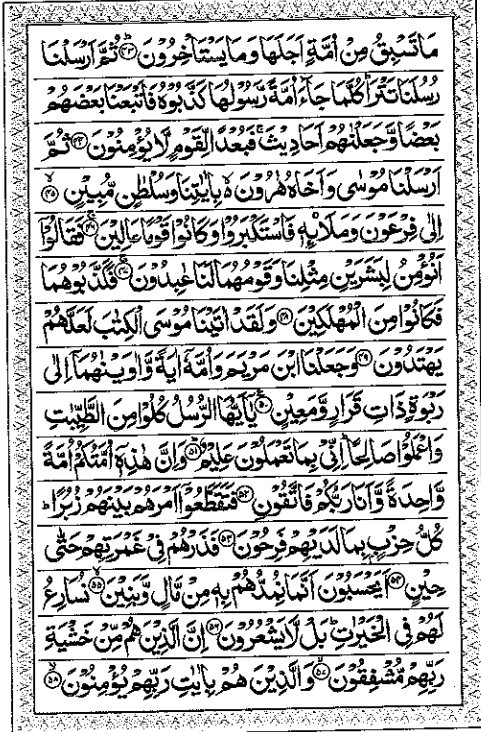 مَا تَسۡبِقُ مِنۡ اُمَّةٍ اَجَلَهَا وَمَا يَسۡتَاۡخِرُوۡنَ ﴿۴۳﴾ ثُمَّ اَرۡسَلۡنَا
رُسُلَنَا تَتۡرَا ؕ كُلَّمَا جَآءَ اُمَّةً رَّسُوۡلُهَا كَذَّبُوۡهُ فَاَتۡبَعۡنَا بَعۡضَهُمۡ
بَعۡضًا وَّجَعَلۡنٰهُمۡ اَحَادِيۡثَ ۚ فَبُعۡدًا لِّقَوۡمٍ لَّا يُؤۡمِنُوۡنَ ﴿۴۴﴾ ثُمَّ
اَرۡسَلۡنَا مُوۡسٰى وَاَخَاهُ هٰرُوۡنَ ۬ۙ بِاٰيٰتِنَا وَسُلۡطٰنٍ مُّبِيۡنٍ ﴿۴۵﴾ۙ
اِلٰى فِرۡعَوۡنَ وَمَلَا۟ئِهٖ فَاسۡتَكۡبَرُوۡا وَكَانُوۡا قَوۡمًا عَالِيۡنَ ﴿۴۶﴾ۚ فَقَالُوۡۤا
اَنُؤۡمِنُ لِبَشَرَيۡنِ مِثۡلِنَا وَقَوۡمُهُمَا لَنَا عٰبِدُوۡنَ ﴿۴۷﴾ۚ فَكَذَّبُوۡهُمَا
فَكَانُوۡا مِنَ الۡمُهۡلَكِيۡنَ ﴿۴۸﴾ وَلَقَدۡ اٰتَيۡنَا مُوۡسَى الۡكِتٰبَ لَعَلَّهُمۡ
يَهۡتَدُوۡنَ ﴿۴۹﴾ وَجَعَلۡنَا ابۡنَ مَرۡيَمَ وَاُمَّهٗۤ اٰيَةً وَّاٰوَيۡنٰهُمَاۤ اِلٰى
رَبۡوَةٍ ذَاتِ قَرَارٍ وَّمَعِيۡنٍ ﴿۵۰﴾ يٰۤاَيُّهَا الرُّسُلُ كُلُوۡا مِنَ الطَّيِّبٰتِ
وَاعۡمَلُوۡا صَالِحًا ؕ اِنِّىۡ بِمَا تَعۡمَلُوۡنَ عَلِيۡمٌ ﴿۵۱﴾ؕ وَاِنَّ هٰذِهٖۤ اُمَّتُكُمۡ اُمَّةً
وَّاحِدَةً وَّاَنَا رَبُّكُمۡ فَاتَّقُوۡنِ ﴿۵۲﴾ فَتَقَطَّعُوۡۤا اَمۡرَهُمۡ بَيۡنَهُمۡ زُبُرًا ؕ
كُلُّ حِزۡبٍۢ بِمَا لَدَيۡهِمۡ فَرِحُوۡنَ ﴿۵۳﴾ فَذَرۡهُمۡ فِىۡ غَمۡرَتِهِمۡ حَتّٰى
حِيۡنٍ ﴿۵۴﴾ اَيَحۡسَبُوۡنَ اَنَّمَا نُمِدُّهُمۡ بِهٖ مِنۡ مَّالٍ وَّبَنِيۡنَ ﴿۵۵﴾ۙ نُسَارِعُ
لَهُمۡ فِى الۡخَيۡرٰتِ ؕ بَلْ لَّا يَشۡعُرُوۡنَ ﴿۵۶﴾ اِنَّ الَّذِيۡنَ هُمۡ مِّنۡ خَشۡيَةِ
رَبِّهِمۡ مُّشۡفِقُوۡنَ ﴿۵۷﴾ۙ وَالَّذِيۡنَ هُمۡ بِاٰيٰتِ رَبِّهِمۡ يُؤۡمِنُوۡنَ ﴿۵۸﴾ۙ